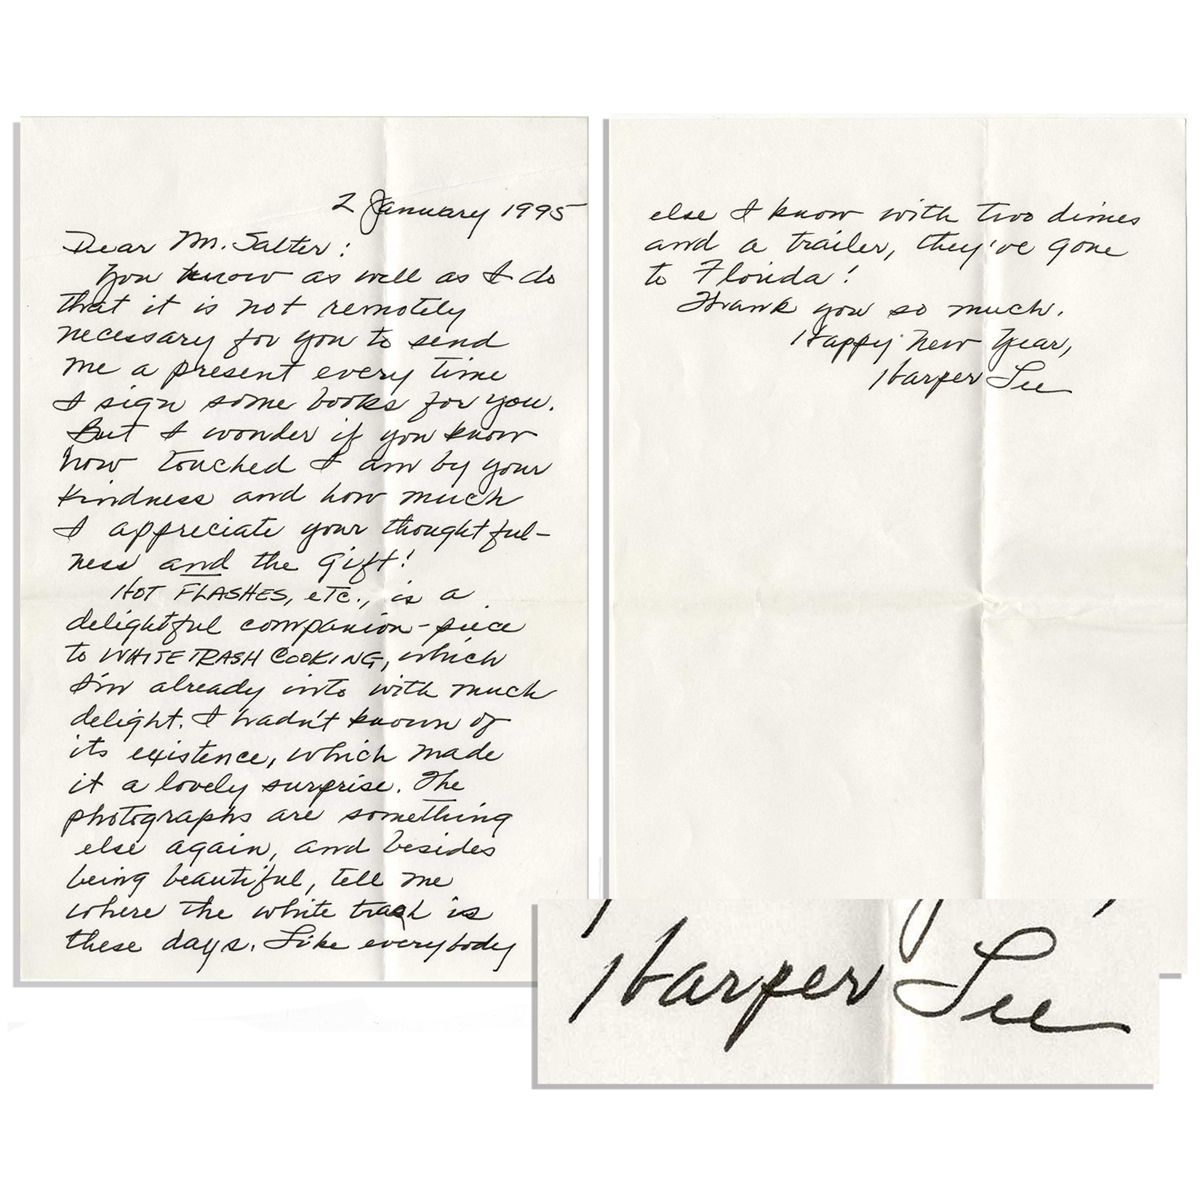 2 January 1995
Dear Mr. Salter:
You know as well as I do
that it is not remotely
necessary for you to send
me a present every time
I sign some books for you.
But I wonder if you know
how touched I am by your
kindness and how much
I appreciate your thoughtful-
ness and the gift!
HOT FLASHES, ETC., is a
delightful companion-piece
to WHITE TRASH COOKING, which
I'm already into with much
delight. I hadn't known of
its existence, which made
it a lovely surprise. The
photographs are something
else again, and besides
being beautiful, tell me
where the white trash is
these days. Like everybody
else I know with two dimes
and a trailer, they've gone
to Florida!
Thank you so much.
Happy New Year,
Harper Lee
Harper Lee